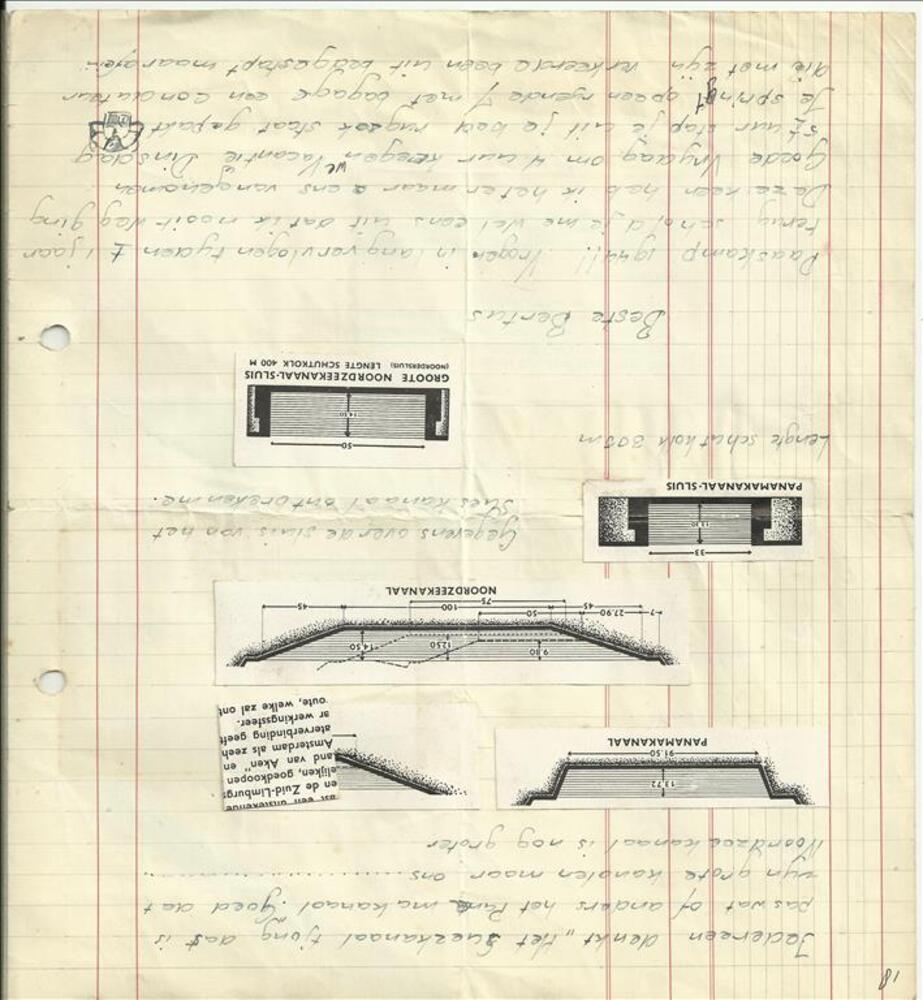 18
Iedereen denkt „Het Suezkanaal tjong dat is
pas wat of anders het Panamakanaal. Goed dat
zijn grote kanalen maar ons ....................
Noordzeekanaal is nog groter
13.72
91.50
PANAMAKANAAL
ast een uitstekende
en de Zuid-Limburgs
elijken, goedkoopen
land van Aken" en
Amsterdam als zeeh
aterverbinding geeft
ar werkingssfeer.
oute, welke zal ont
9.80 12.50 14.50
7 27.90 50
45 100 45
75
NOORDZEEKANAAL
33
PANAMAKANAAL-SLUIS
Gegevens over de sluis van het
Suez kanaal ontbreken me.
Lengte schutkolk 305 m
50
GROOTE NOORDZEEKANAAL-SLUIS
(NOORDERSLUIS) LENGTE SCHUTKOLK 400 M
Beste Bertus
Paaskamp 1944!! Vroegen in lang vervlogen tyden ± 1 jaar
terug schold je me wel eens uit dat ik nooit weg ging
Deze keer heb ik het er maar eens van genomen
Goede Vrydag om 4 uur kregen we Vacantie Dinsdag
5½ uur stap je uit je bed rugzak staat gepakt
Je springt op een ryende 7 met bagage een conducteur
die met zyn verkeerde been uit bed gestapt maar